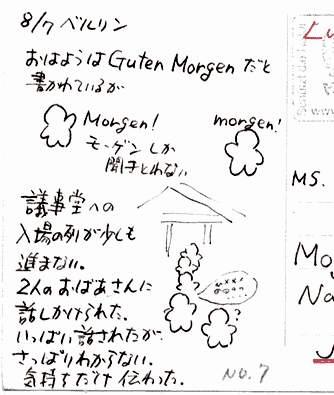 8/7 ベルリン
おはようは Guten Morgen だと
書かれているが
Morgen!
morgen!
モーゲン しか
聞きとれない
議事堂への
入場の列が少しも
進まない。
2人のおばあさんに
話しかけられた。
いっぱい話されたが
さっぱりわからない。
気持ちだけ伝わった。
××××
?
NO.7
www
MS.